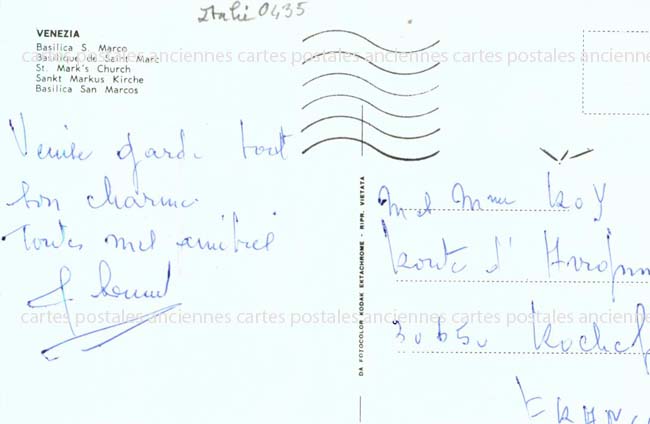 Italie 0435
VENEZIA
Basilica S. Marco
Basilique de Saint Marc
St. Mark's Church
Sankt Markus Kirche
Basilica San Marcos
cartes postales anciennes cartes postales anciennes cartes postales anciennes
Venise garde tout
son charme.
Toutes mes amitiés
DA FOTOCOLOR KODAK EKTACHROME - RIPR. VIETATA
M et Mme Roy
Route d'
30650 Rochef
FRANC
cartes postales anciennes cartes postales anciennes cartes postales anciennes